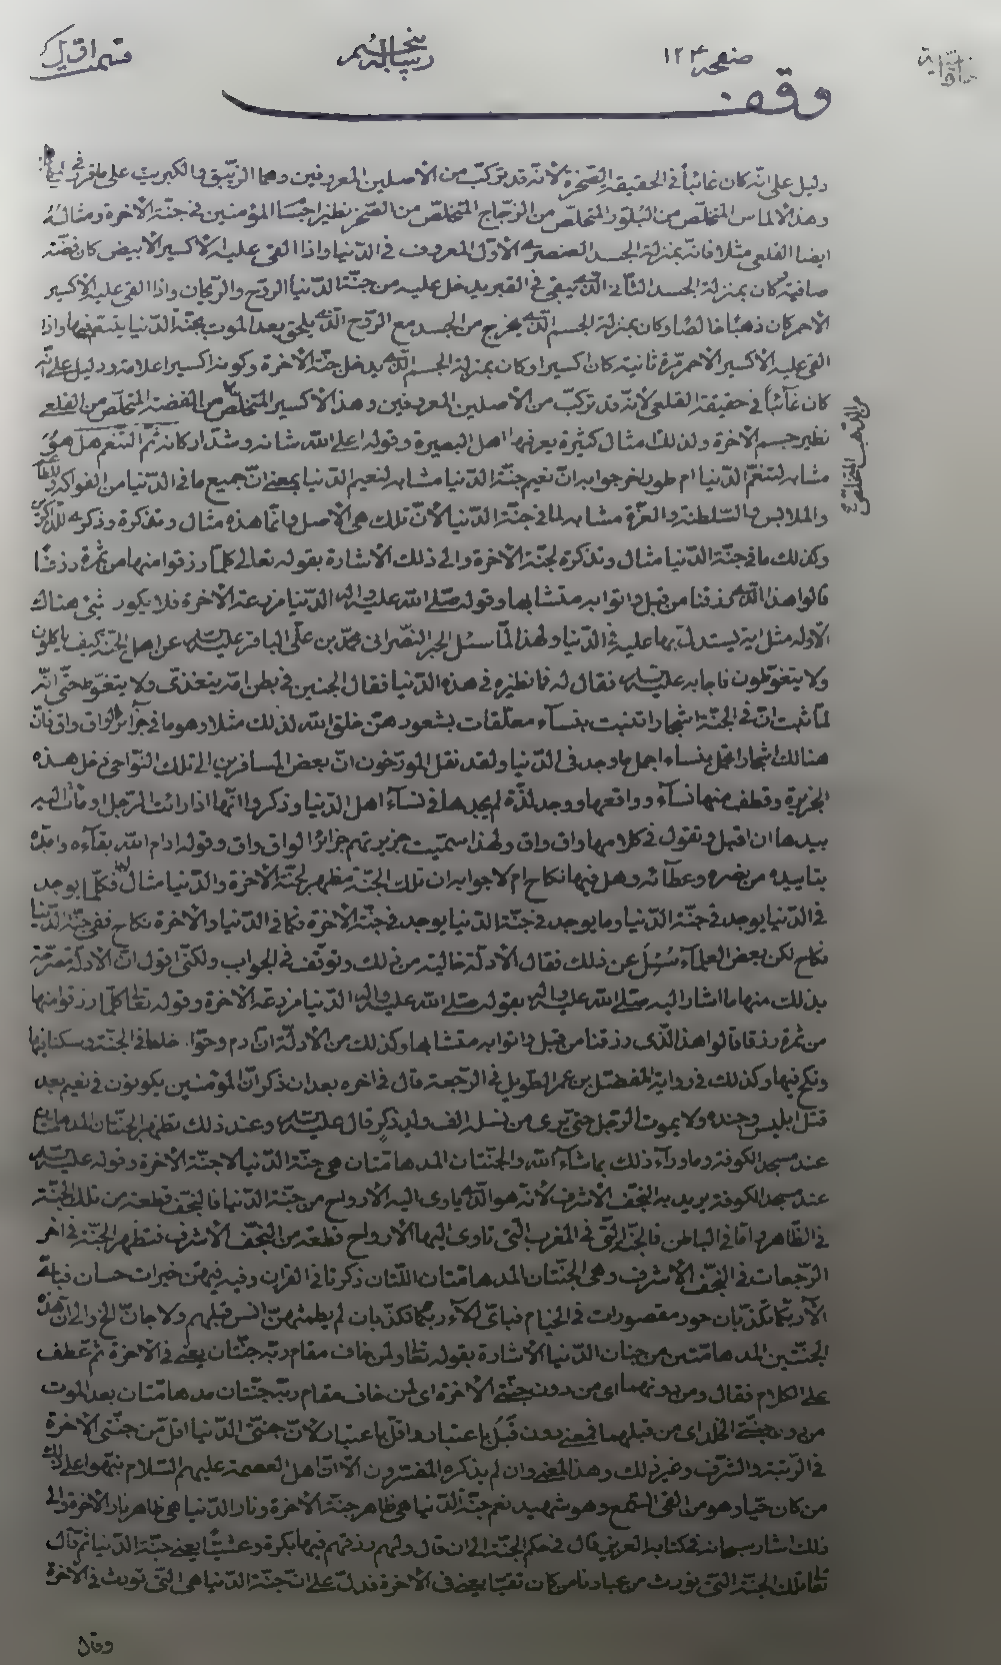 صفحه ١٢٤
وقف
دليل على انّه كان غائباً فى الحقيقة الصّخرة لانّه قد تركّب من الأصلين المعروفين وهما الزيّبق والكبريت على ما قرر فى
وهذا الالماس المتخلّص من البلّور المتخلّص من الزّجاج المتخلّص من الصّخر نظير اجسام المؤمنين فى جنّة الآخرة ومثاله
ايضا القلعى مثلا فانّه بمنزلة الجسد العنصرى الأوّل المعروف فى الدّنيا واذا القى عليه الأكسير الأبيض كان فضّة
صافية كان بمنزلة الجسد الثانى الّذى يبقى فى القبر يدخل عليه من جنّة الدّنيا الروح والريحان واذا القى عليه الأكسير
الأحمر كان ذهبًا خالصًا وكان بمنزلة الجسم الّذى يخرج من الجسد مع الرّوح الّذى يلحق بعد الموت بجنّة الدّنيا يتنعّم فيها واذا
القى عليه الأكسير الأحمر مرّة ثانية كان اكسيرا وكان بمنزلة الجسم الّذى يدخل جنّة الآخرة وكونه اكسيرا علامة ودليل على انّه
كان غآئباً فى حقيقة القلعى لأنّه قد تركّب من الأصلين المعروفين وهذا الأكسير المتخلّص من الفضة المتخلّص من القلعى
نظير جسم الآخرة ولذلك امثال كثيرة يعرفها اهل البصيرة وقوله اعلى الله شانه وشدّ اركانه ثمّ التنعّم هل هو
مشابه لتنعّم الدّنيا ام طور اخر جوابه انّ نعيم جنّة الدّنيا مشابه لنعيم الدّنيا بمعنى انّ جميع ما فى الدّنيا من الفواكه
والملابس والسّلطنة والعزّة مشابه لما فى جنّة الدّنيا لأنّ تلك هى الأصل وانّما هذه مثال وتذكرة وذكرى للذّاكرين
وكذلك ما فى جنّة الدّنيا مثال وتذكرة لجنّة الآخرة والى ذلك الاشارة بقوله تعالى كلّما رزقوا منها من ثمرة رزقًا
قالوا هذا الّذى رزقنا من قبل واتوا به متشابها وقوله صلّى الله عليه واله الدّنيا مزرعة الآخرة فلا يكون شئ هناك
الّا وله مثل اية يستدلّ بها عليه فى الدّنيا ولهذا لمّا سئل الحبر النّصرانى محمّد بن علىّ الباقر عليه السلام عن اهل الجنّة كيف ياكلون
ولا يتغوّطون فاجابه عليه السلام فقال له فما نظيره فى هذه الدّنيا فقال الجنين فى بطن امّه يتغذّى ولا يتغوّط حتّى انّه
لمّا ثبت انّ فى الجنّة اشجارا تنبت بنسآء معلّقات بشعورهنّ خلق الله لذلك مثلا وهو ما فى جزائر الواق واق فانّ
هنالك اشجارا تحمل بنساء اجمل ما وجد فى الدّنيا ولقد نقل المورّخون انّ بعض المسافرين الى تلك النّواحى دخل هذه
الجزيرة وقطف منها نسآء وواقعها ووجد لذّة لم يجدها فى نسآء اهل الدّنيا وذكروا انّها اذا رات الرّجل اومأت اليه
بيدها ان اقبل وتقول فى كلامها واق واق ولهذا سمّيت جزيرتهم جزائر الواق واق وقوله ادام الله بقآءه وامدّه
بتاييده من نصره وعطآئه وهل فيها نكاح ام لا جوابه ان تلك الجنّة مظهر لجنّة الآخرة والدّنيا مثال لها فكلّما يوجد
فى الدّنيا يوجد فى جنّة الدّنيا وما يوجد فى جنّة الدّنيا يوجد فى جنّة الآخرة فكما فى الدّنيا والآخرة نكاح ففى جنّة الدّنيا
نكاح لكن بعض العلمآء سُئِلَ عن ذلك فقال الأدلّة خالية من ذلك وتوقّف فى الجواب ولكنّى اقول انّ الأدلّة مصرّحة
بذلك منها ما اشار اليه صلّى الله عليه واله بقوله صلّى الله عليه واله الدّنيا مزرعة الآخرة وقوله تعالى كلّما رزقوا منها
من ثمرة رزقا قالوا هذا الّذى رزقنا من قبل واتوا به متشابها وكذلك من الأدلّة انّ ادم وحوّا خلقا فى الجنّة وسكنا فيها
ونكح فيها وكذلك فى رواية المفضّل بن عمر الطّويل فى الرّجعة قال فى اخره بعد ان ذكر انّ المؤمنين يكونون فى نعيم بعد
قتل ابليس وجنده ولا يموت الرّجل حتّى يرى من نسله الف ولد ذكر قال عليه السلام وعند ذلك تظهر الجنّتان المدهامّتان
عند مسجد الكوفة وما ورآء ذلك بما شآء الله والجنّتان المدهامّتان هى جنّة الدّنيا لا جنّة الآخرة وقوله عليه السلام
عند مسجد الكوفة يريد به النّجف الأشرف لأنّه هو الّذى ياوى اليه الأرواح من جنّة الدّنيا فالنّجف قطعة من تلك الجنّة
فى الظّاهر وامّا فى الباطن فالجنّة الّتى فى المغرب الّتى تاوى اليها الأرواح قطعة من النّجف الأشرف فتظهر الجنّة فى اخر
الرّجعات فى النّجف الأشرف وهى الجنّتان المدهامّتان اللّتان ذكرتا فى القران وفيه فيهنّ خيرات حسان فبأىّ
الآء ربّكما تكذّبان حور مقصورات فى الخيام فبأىّ الآء ربّكما تكذّبان لم يطمثهنّ انس قبلهم ولا جانّ الخ والى انّ هذه
الجنّتين المدهامّتين من جنان الدّنيا الأشارة بقوله تعالى ولمن خاف مقام ربّه جنّتان يعنى فى الآخرة ثم عطف
على الكلام فقال ومن دونهما اى من دون جنّتى الآخرة اى لمن خاف مقام ربّه جنّتان مدهامّتان بعد الموت
من دون جنّتى الخلد اى من قبلهما فمعنى دون قبل باعتبار واقلّ باعتبار لأنّ جنّتى الدّنيا اقلّ من جنّتى الآخرة
فى الرّتبة والشّرف وغير ذلك وهذا المعنى وان لم يذكره المفسّرون الّا انّ اهل العصمة عليهم السّلام نبّهوا على ذلك
من كان حيّا وهو من القى السّمع وهو شهيد نعم جنّة الدّنيا هى ظاهر جنّة الآخرة ونار الدّنيا هى ظاهر نار الآخرة والى
ذلك اشار سبحانه فى كتابه العزيز قال فى حكم الجنّة الى ان قال ولهم رزقهم فيها بكرة وعشيّا يعنى جنّة الدّنيا ثم قال
تعالى تلك الجنّة الّتى نورث من عبادنا من كان تقيّا يعنى فى الآخرة فدلّ على انّ جنّة الدّنيا هى الّتى تورث فى الآخرة
وقال